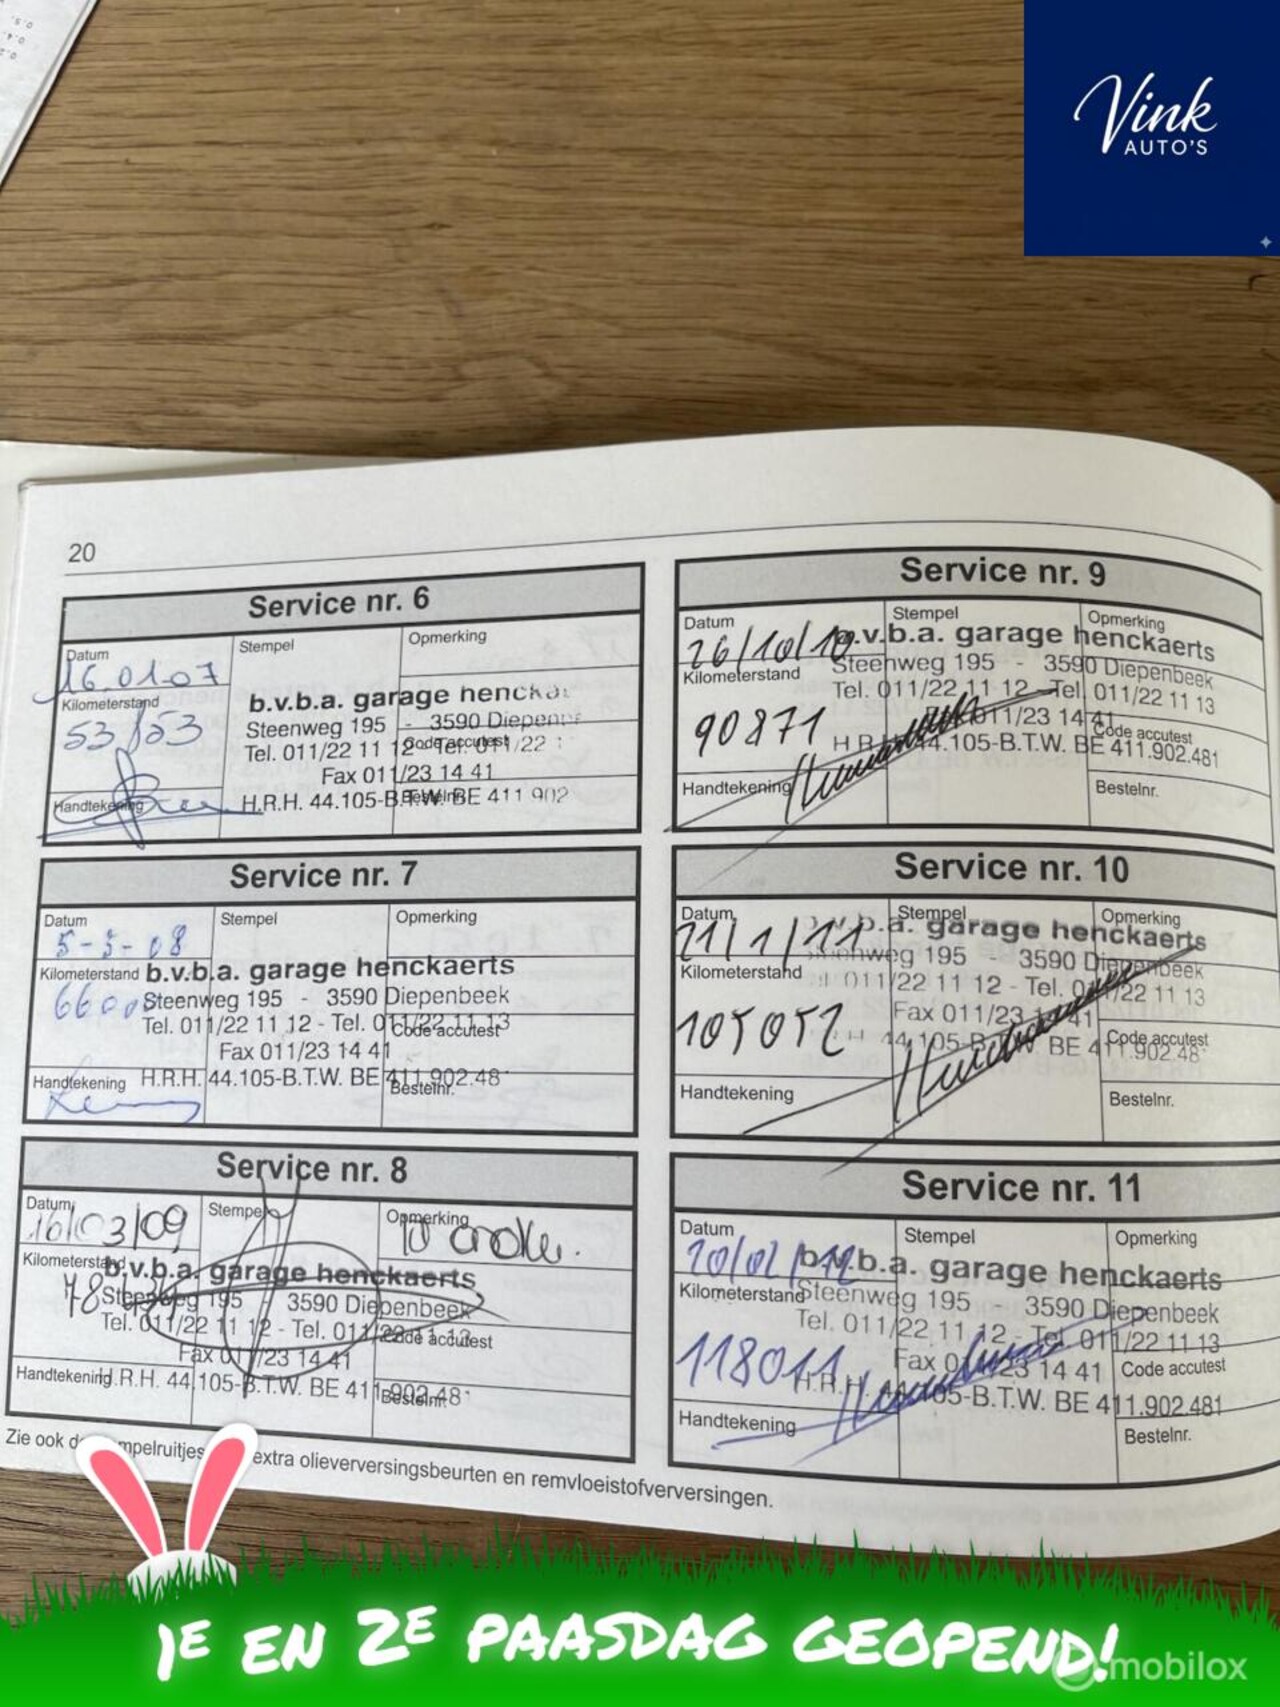 Vink
AUTO'S
20
Service nr. 6
Datum
Stempel
Opmerking
16.01.07
Kilometerstand
b.v.b.a. garage
Steenweg 195 - 3590
Tel. 011/22 11 12 - Tel. 011/22
Code accutest
Fax 011/23 14 41
Handtekening
H.R.H. 44.105-B.T.W. BE 411 902
Bestelnr.
Service nr. 7
Datum
Stempel
Opmerking
5-3-08
Kilometerstand
b.v.b.a. garage henckaerts
Steenweg 195 - 3590 Diepenbeek
Tel. 011/22 11 12 - Tel. 011/22 11 13
Code accutest
Fax 011/23 14 41
Handtekening
H.R.H. 44.105-B.T.W. BE 411.902.48
Bestelnr.
Service nr. 8
Datum
Stempel
Opmerking
16/03/09
Kilometerstand
b.v.b.a. garage henckaerts
Steenweg 195 3590 Diepenbeek
Tel. 011/22 11 12 - Tel. 011/22 11 13
Code accutest
Fax 011/23 14 41
Handtekening
H.R.H. 44.105-B.T.W. BE 411.902.48
Bestelnr.
Service nr. 9
Datum
Stempel
Opmerking
26/10/10
b.v.b.a. garage henckaerts
Kilometerstand
Steenweg 195 - 3590 Diepenbeek
Tel. 011/22 11 12 - Tel. 011/22 11 13
90871
Fax 011/23 14 41
Code accutest
H.R.H. 44.105-B.T.W. BE 411.902.481
Handtekening
Bestelnr.
Service nr. 10
Datum
Stempel
Opmerking
21/1/11
b.v.b.a. garage henckaerts
Kilometerstand
Steenweg 195 - 3590 Diepenbeek
Tel. 011/22 11 12 - Tel. 011/22 11 13
105052
Fax 011/23 14 41
Code accutest
H.R.H. 44.105-B.T.W. BE 411.902.48
Handtekening
Bestelnr.
Service nr. 11
Datum
Stempel
Opmerking
10/02/12
b.v.b.a. garage henckaerts
Kilometerstand
Steenweg 195 - 3590 Diepenbeek
Tel. 011/22 11 12 - Tel. 011/22 11 13
118011
Fax 011/23 14 41
Code accutest
H.R.H. 44.105-B.T.W. BE 411.902.481
Handtekening
Bestelnr.
Zie ook extra olieverversingsbeurten en remvloeistofverversingen.
1E EN 2E PAASDAG GEOPEND!
mobilox